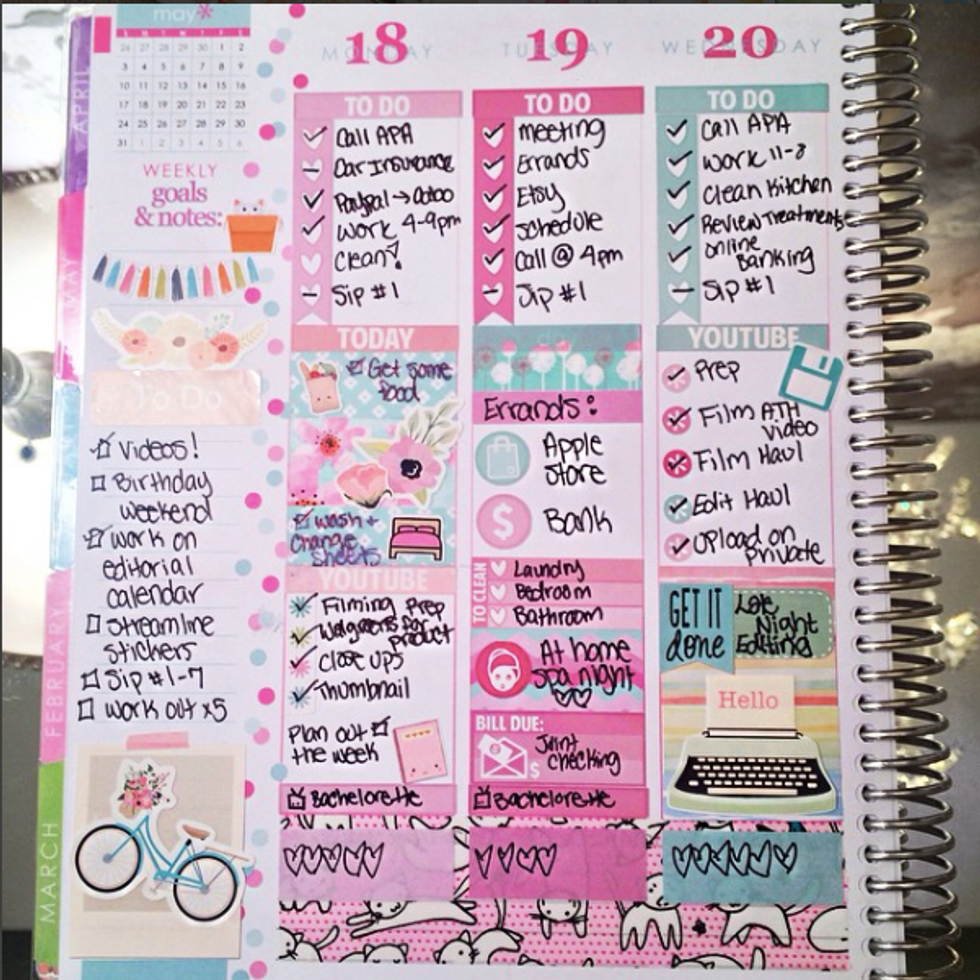 may*
S M T W T F S
26 27 28 29 30 1 2
3 4 5 6 7 8 9
10 11 12 13 14 15 16
17 18 19 20 21 22 23
24 25 26 27 28 29 30
31 1 2 3 4 5 6
WEEKLY
goals
& notes:
To Do
Videos!
Birthday
weekend
Work on
editorial
calendar
Streamline
stickers
Sip #1-7
Work out x5
APRIL
MAY
FEBRUARY
MARCH
18
MONDAY
TO DO
Call APA
Car Insurance
Paypal →
Work 4-9pm
Clean!
Sip #1
TODAY
Get some
food
wash +
change
sheets
YOUTUBE
Filming Prep
Walgreens for
product
Close ups
Thumbnail
Plan out
the week
Bachelorette
19
TUESDAY
TO DO
meeting
Errands
Etsy
Schedule
Call @ 4pm
Sip #1
Errands:
Apple
Store
$
Bank
TO CLEAN
Laundry
Bedroom
Bathroom
At home
spa night
BILL DUE:
$
Joint
checking
Bachelorette
20
WEDNESDAY
TO DO
Call APA
Work 11-8
Clean Kitchen
Review Treatments
Online
Banking
Sip #1
YOUTUBE
Prep
Film ATH
video
Film Haul
Edit Haul
Upload on
Private
GET IT
done
Late
Night
Editing
Hello